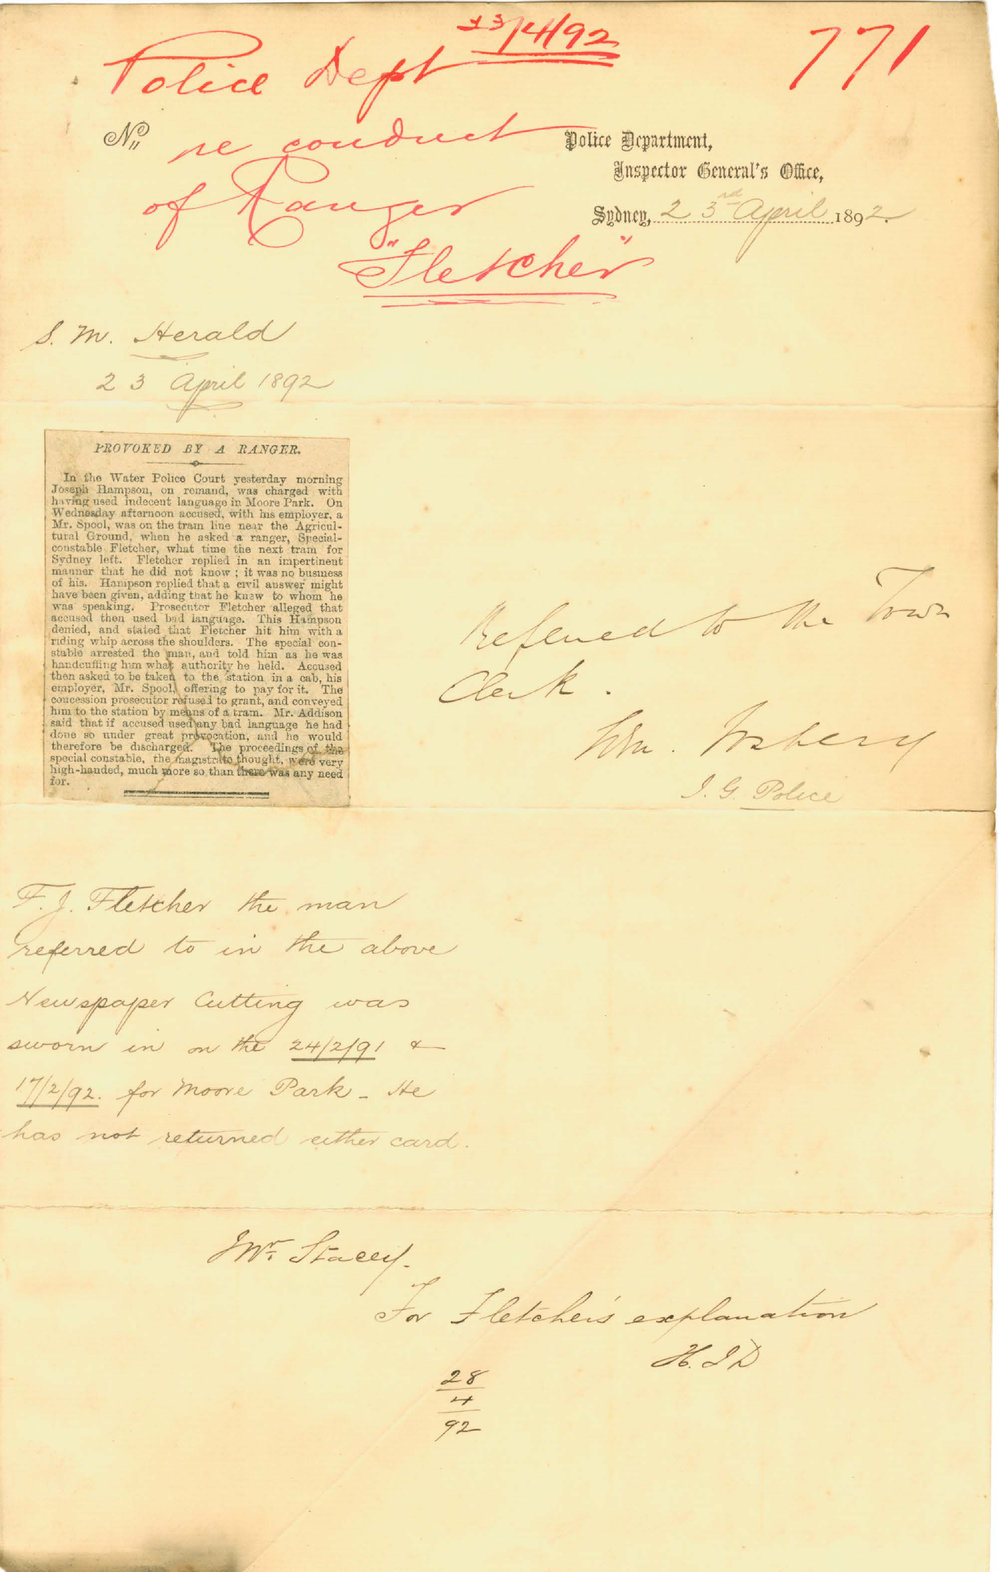 23/4/92
771
Police Dept
No.
re conduct
of Ranger
"Fletcher"
Police Department,
Inspector General's Office,
Sydney, 23rd April 1892.
S. M. Herald
23 April 1892
PROVOKED BY A RANGER.
In the Water Police Court yesterday morning
Joseph Hampson, on remand, was charged with
having used indecent language in Moore Park. On
Wednesday afternoon accused, with his employer, a
Mr. Spool, was on the tram line near the Agricul-
tural Ground, when he asked a ranger, Special-
constable Fletcher, what time the next tram for
Sydney left. Fletcher replied in an impertinent
manner that he did not know; it was no business
of his. Hampson replied that a civil answer might
have been given, adding that he knew to whom he
was speaking. Prosecutor Fletcher alleged that
accused then used bad language. This Hampson
denied, and stated that Fletcher hit him with a
riding whip across the shoulders. The special con-
stable arrested the man, and told him as he was
handcuffing him what authority he held. Accused
then asked to be taken to the station in a cab, his
employer, Mr. Spool, offering to pay for it. The
concession prosecutor refused to grant, and conveyed
him to the station by means of a tram. Mr. Addison
said that if accused used any bad language he had
done so under great provocation, and he would
therefore be discharged. The proceedings of the
special constable, the magistrate thought, were very
high-handed, much more so than there was any need
for.
Referred to the Town
Clerk.
Edm. Fosbery
I. G. Police
F. J. Fletcher the man
referred to in the above
Newspaper Cutting was
sworn in on the 24/2/91 &
17/2/92. for Moore Park - He
has not returned either card.
Mr. Stacey.
For Fletcher's explanation
H. J. D
28
4
92